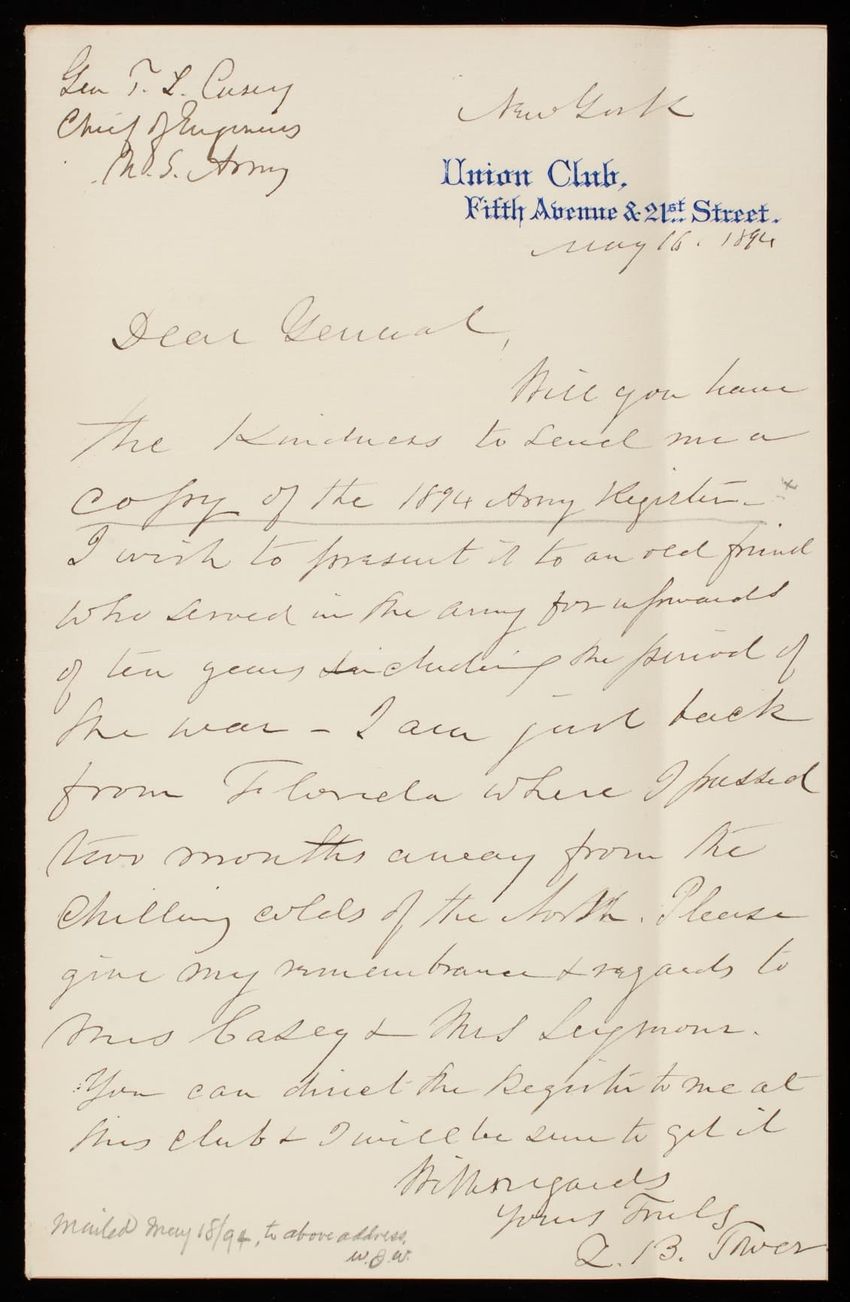 Gen T. L. Casey
Chief of Engineers
U.S. Army
New York
Union Club.
Fifth Avenue & 21st Street.
May 16. 1894
Dear General,
Will you have
the kindness to send me a
copy of the 1894 Army Register -
I wish to present it to an old friend
who served in the army for upwards
of ten years including the period of
the war - I am just back
from Florida where I passed
two months away from the
chilling colds of the North. Please
give my remembrance & regards to
Mrs Casey & Mrs Seymour.
You can direct the Register to me at
this club & I will be sure to get it
With regards
Yours Truly
Z. B. Tower
Mailed May 18/94, to above address.
W.J.W.